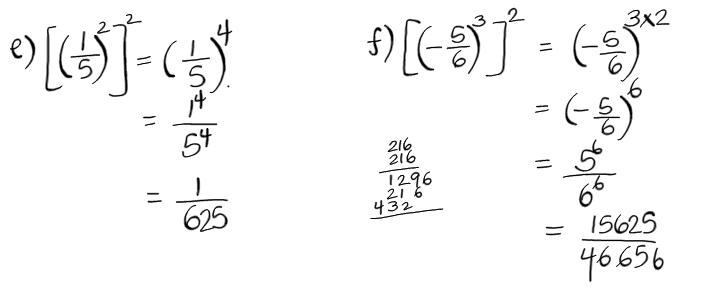 e) [(1/5)²]² = (1/5)⁴
= 1⁴/5⁴
= 1/625
f) [(-5/6)³]² = (-5/6)³ˣ²
= (-5/6)⁶
= 5⁶/6⁶
= 15625/46656
216
216
1296
216
432